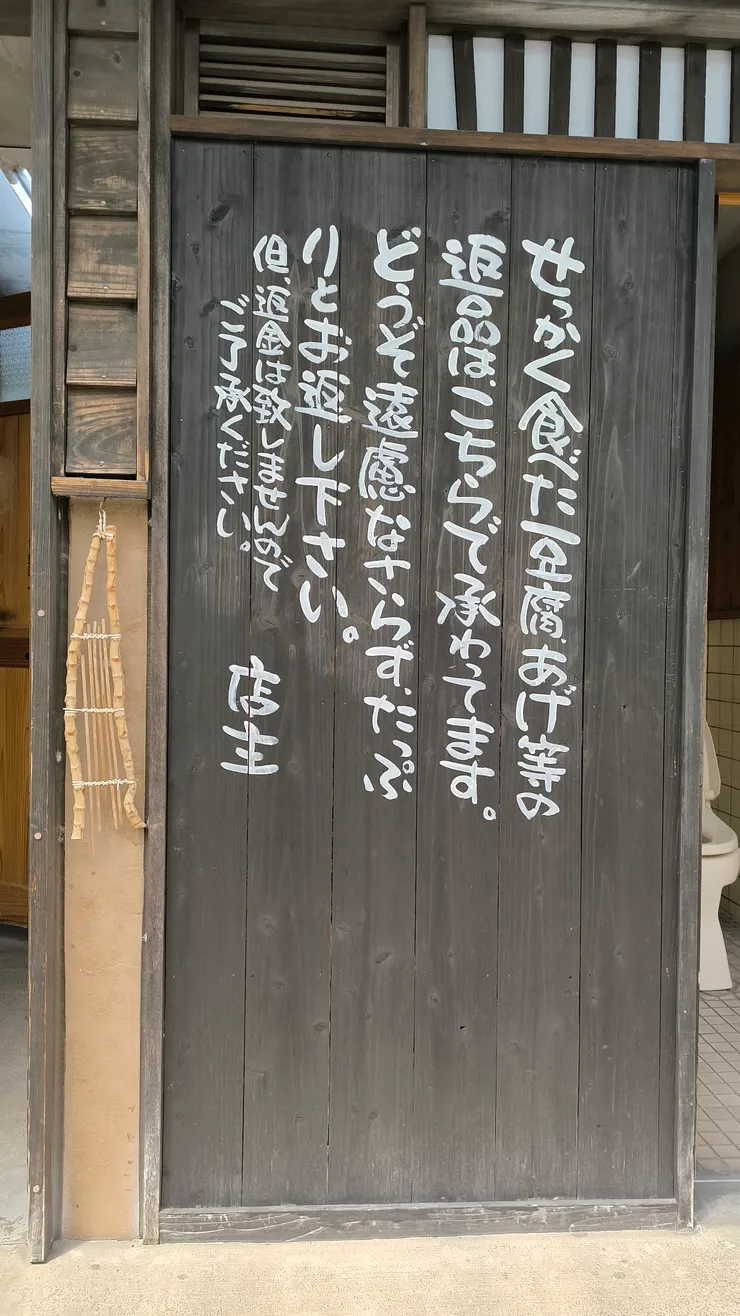 せっかく食べた豆腐、あげ等の
返品は、こちらで承わってます。
どうぞ遠慮なさらず、たっぷ
りとお返し下さい。
但、返金は致しませんので
ご了承ください。
店主